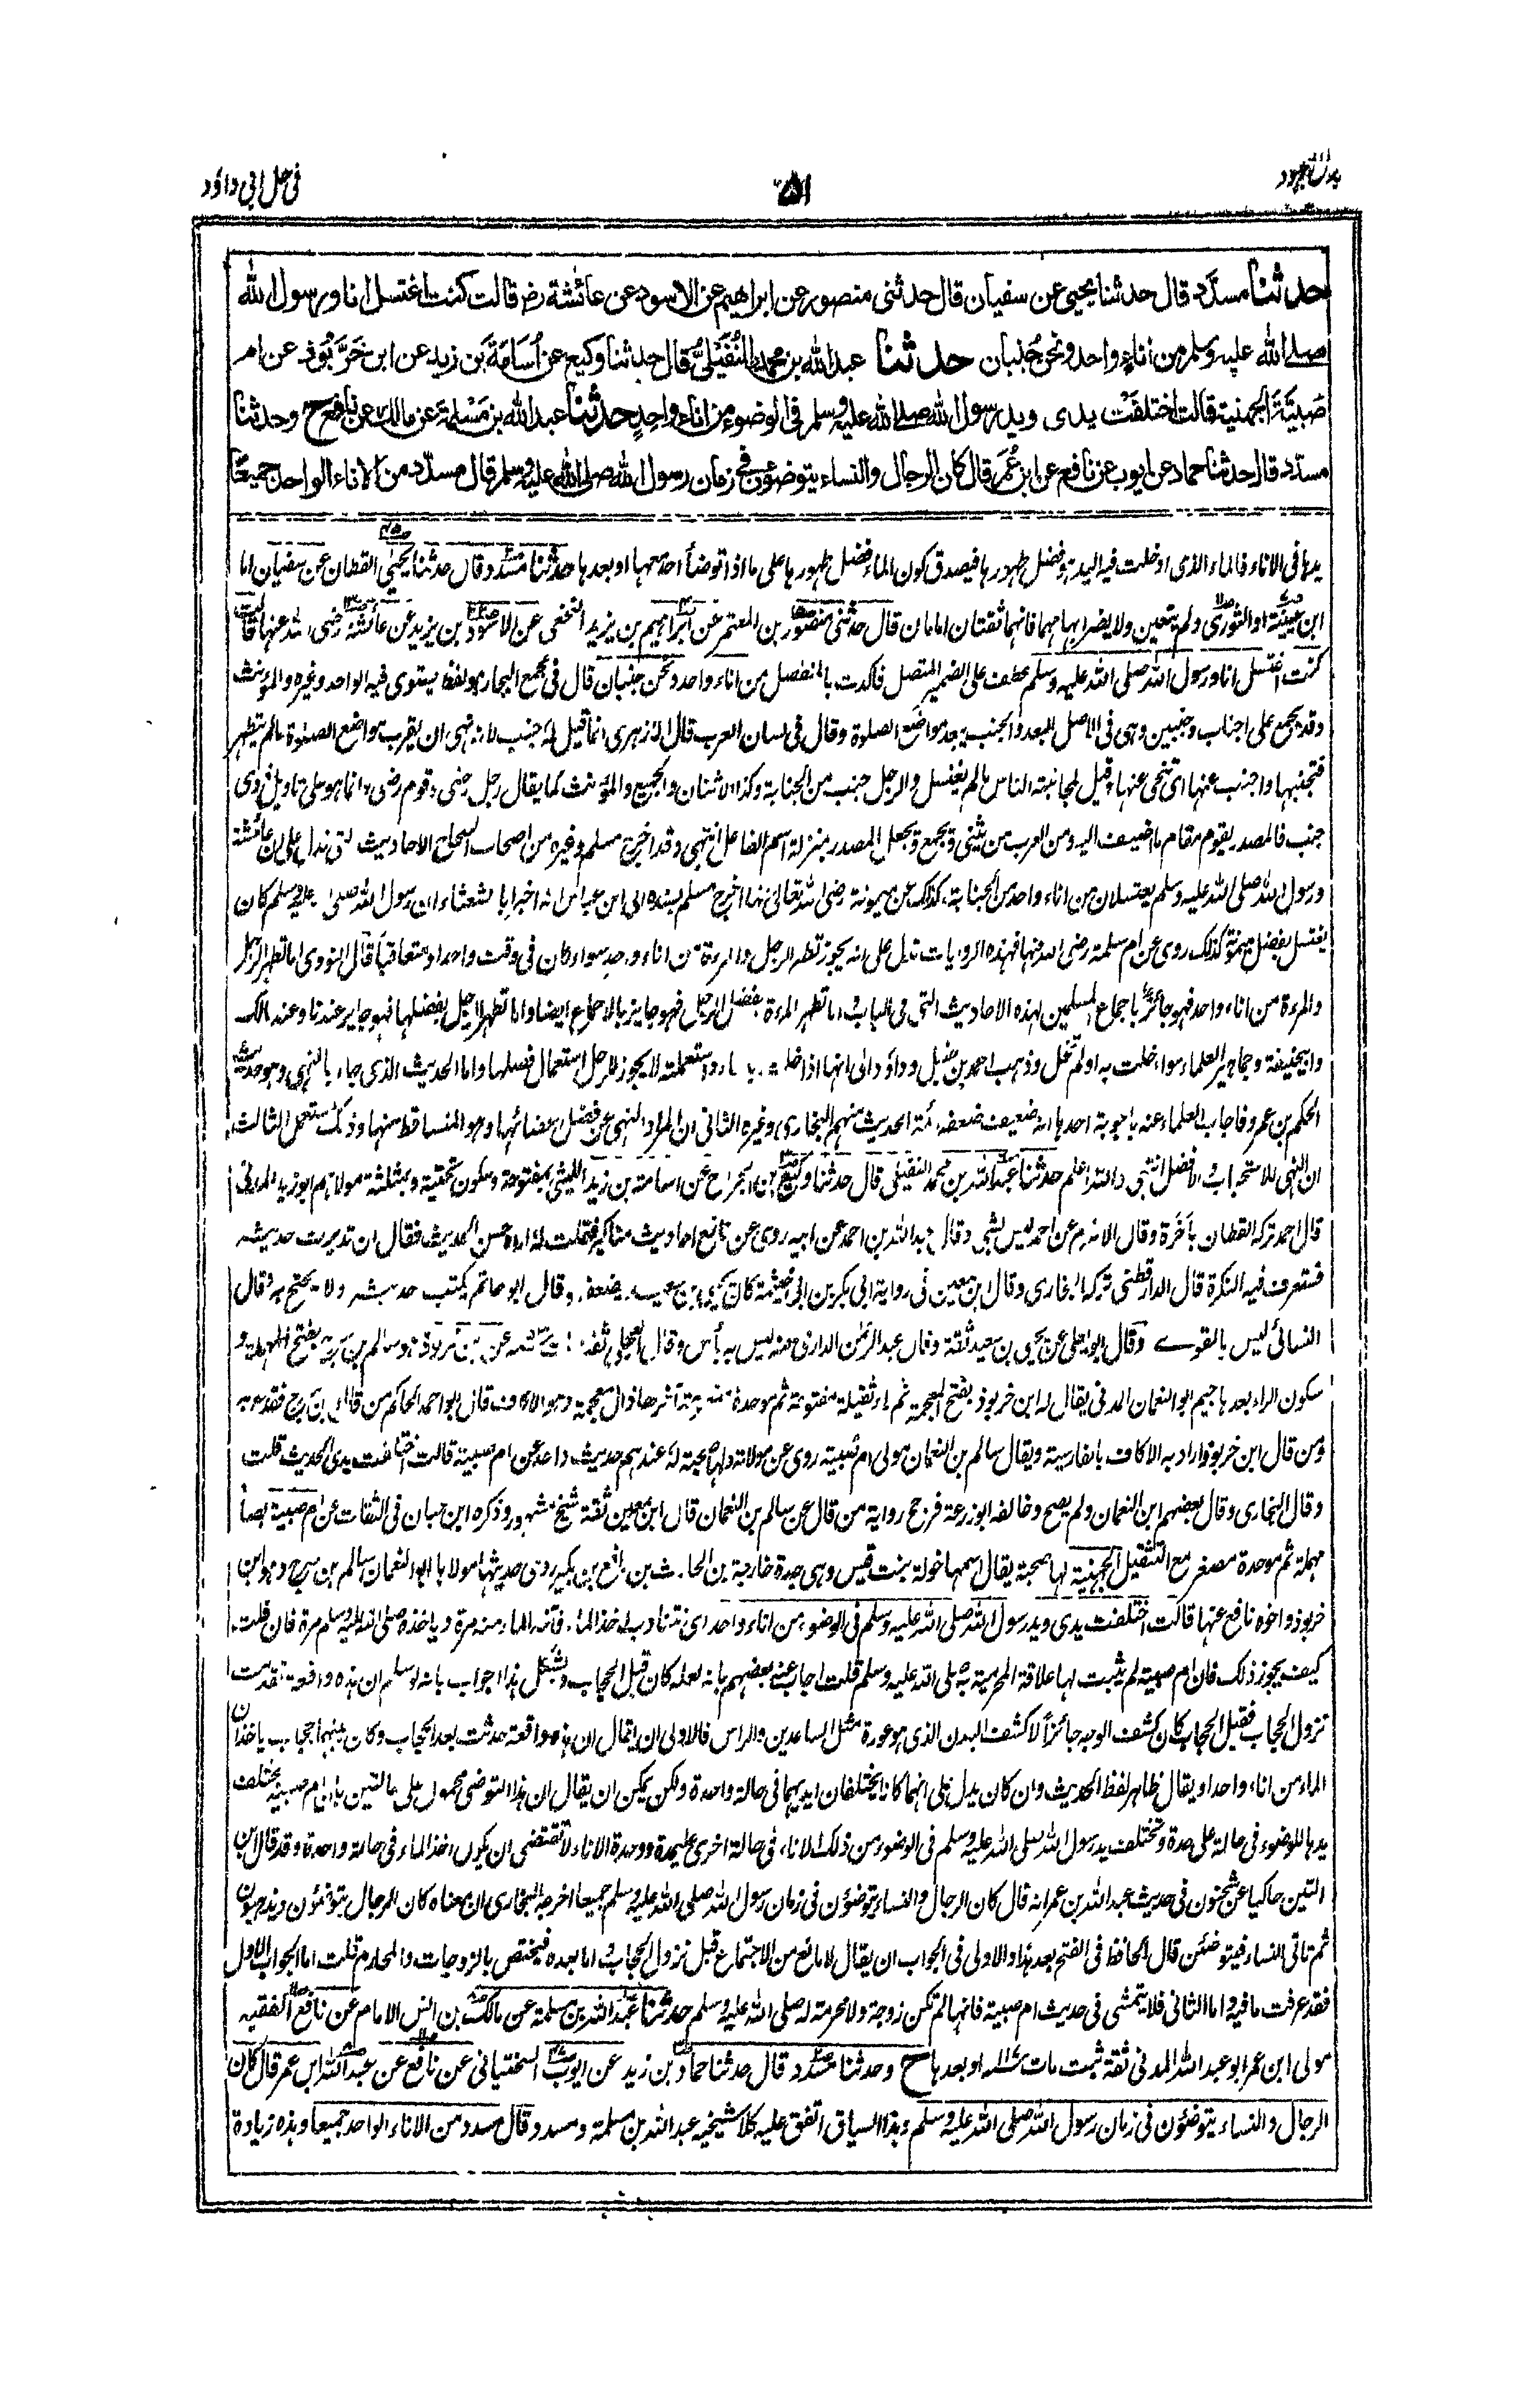 بذل المجهود
٥١
فی حل ابی داؤد
حدثنا مسدد قال حدثنا يحيى عن سفيان قال حدثنى منصور عن ابراهيم عن الاسود عن عائشة رض قالت كنت اغتسل انا ورسول الله
صلى الله عليه وسلم من اناء واحد ونحن جنبان حدثنا عبد الله بن محمد النُّفَيْلِيُّ قال حدثنا وكيع عن أُسَامَةَ بن زيد عن ابن خَرَّبُوذ عن ام
صُبَيَّةَ الجهنية قالت اختلفَتْ يدى ويد رسول الله صلى الله عليه وسلم فى الوضوء من اناء واحدٍ حدثنا عبد الله بن مَسْلمةَ عن مالك عن نافع ح وحدثنا
مسدد قال حدثنا حماد عن ايوب عن نافع عن ابن عُمَرَ قال كان الرجال والنساء يتوضؤن فى زمان رسول الله صلى الله عليه وسلم قال مسدد من الاناء الواحد جميعًا
يدها فى الاناء فالماء الذى ادخلت فيه اليد هو فضل طهورها فيصدق كون الماء فضل طهورها على ما اذا توضأ احد معها او بعدها حدثنا مسدد وقال حدثنا يحيى القطان عن سفيان اما
ابن عيينة او الثورى ولم يتعين ولا يضر ابهامهما فانهما ثقتان امامان قال حدثنى منصور بن المعتمر عن ابراهيم بن يزيد النخعى عن الاسود بن يزيد عن عائشة رضى الله عنها قالت
كنت اغتسل انا ورسول الله صلى الله عليه وسلم عطف على الضمير المتصل فاكدت بالمنفصل من اناء واحد ونحن جنبان قال فى مجمع البحار هو لفظ يستوى فيه الواحد وغيره والمؤنث
وقد يجمع على اجناب وجنبين وهى فى الاصل البعد والجنب يبعد مواضع الصلوة وقال فى لسان العرب قال الازهرى انما قيل له جنب لانه نهى ان يقرب مواضع الصلوة مالم يتطهر
فتجنبها واجنب عنها اى تنحى عنها وقيل لمجانبته الناس مالم يغتسل والرجل جنب من الجنابة وكذا الاثنان والجميع والمؤنث كما يقال رجل رضى وقوم رضى وانما هو على تاويل ذوى
جنب فالمصدر يقوم مقام ما اضيف اليه ومن العرب من يثنى ويجمع ويجعل المصدر بمنزلة اسم الفاعل انتهى وقد اخرج مسلم وغيره من اصحاب الصحاح الاحاديث التى تدل على ان عائشة
ورسول الله صلى الله عليه وسلم يغتسلان من اناء واحد من الجنابة، كذلك عن ميمونة رضى الله تعالى عنها اخرج مسلم بسنده الى ابن عباس انه اخبر ابا الشعثاء ان رسول الله صلى عليه وسلم كان
يغتسل بفضل ميمونة كذلك روى عن ام سلمة رضى الله عنها فهذه الروايات تدل على انه يجوز تطهر الرجل والمرءة من اناء واحد سواء كان فى وقت واحد او متعاقبا قال النووى اما تطهر الرجل
والمرءة من اناء واحد فهو جائز باجماع المسلمين لهذه الاحاديث التى فى الباب واما تطهر المرءة بفضل الرجل فهو جايز بالاجماع ايضا واما تطهر الرجل بفضلها فهو جايز عندنا وعند مالك
وابى حنيفة وجماهير العلماء سواء خلت به او لم تخل وذهب احمد بن حنبل وداؤد الى انها اذا خلت بالماء واستعملته لا يجوز للرجل استعمال فضلها واما الحديث الذى جاء بالنهى وهو حديث
الحكم بن عمرو فاجاب العلماء عنه باجوبة احدها انه ضعيف ضعفه ائمة الحديث منهم البخارى وغيره الثانى ان المراد النهى عن فضل اعضائها وهو المتساقط منها وذلك مستعمل الثالث
ان النهى للاستحباب والافضل انتهى والله اعلم حدثنا عبد الله بن محمد النفيلى قال حدثنا وكيع بن الجراح عن اسامة بن زيد الليثى بمفتوحة وسكون تحتية وبمثلثة مولاهم ابو زيد المدنى
قال احمد تركه القطان بآخرة وقال الاثرم عن احمد ليس بشئ وقال عبد الله بن احمد عن ابيه روى عن نافع احاديث مناكير فقلت له اراه حسن الحديث فقال ان تدبرت حديثه
فستعرف فيه النكرة قال الدارقطنى تركه البخارى وقال ابن معين فى رواية ابى بكر بن ابى خيثمة كان يحيى بن سعيد يضعفه وقال ابو حاتم يكتب حديثه ولا يحتج به وقال
النسائى ليس بالقوى وقال ابو يعلى عن يحيى بن سعيد ثقة وقال عبد الرحمن الدارمى عنه ليس به بأس وقال العجلى ثقة عن ابن خربوذ هو سالم بن سرج بفتح المهملة و
سكون الراء بعدها جيم ابو النعمان المدنى يقال له ابن خربوذ بفتح المعجمة ثم راء ثقيلة مفتوحة ثم موحدة آخرها ذال معجمة وهو الاكاف قال ابو احمد الحاكم من قال ابن سرج فقد
ومن قال ابن خربوذ اراد به الاكاف بالفارسية ويقال سالم بن النعمان مولى ام صبية روى عن مولاته ولها صحبة له عندهم حديث واحد عن ام صبية قالت اختلفت يدى الحديث قلت
وقال البخارى وقال بعضهم ابن النعمان ولم يصح وخالفه ابو زرعة فرجح رواية من قال عن سالم بن النعمان قال ابن معين ثقة شيخ مشهور وذكره ابن حبان فى الثقات عن ام صبية بصاد
مهملة ثم موحدة مصغر مع التثقيل الجهنية لها صحبة يقال اسمها خولة بنت قيس وهى جدة خارجة بن الحارث بن رافع بن مكيث روى حديثها مولاها ابو النعمان سالم بن سرج وهو ابن
خربوذ واخوه نافع عنها قالت اختلفت يدى ويد رسول الله صلى الله عليه وسلم فى الوضوء من اناء واحد اى نتناوب فى اخذ الماء فآخذ الماء منه مرة وياخذه صلى الله عليه وسلم مرة فان قلت
كيف يجوز ذلك فان ام صبية لم يثبت لها علاقة المحرمية به صلى الله عليه وسلم قلت اجاب عنه بعضهم بانه لعله كان قبل الحجاب ويشكل هذا الجواب بانه لو سلم ان هذه واقعة تقدمت
نزول الحجاب فقبل الحجاب كان كشف الوجه جائزا لا كشف البدن الذى هو عورة مثل الساعدين والراس فالاولى ان يقال ان هذه واقعة حدثت بعد الحجاب وكان بينهما حجاب ياخذان
الماء من اناء واحد او يقال ظاهر لفظ الحديث وان كان يدل على انهما كانا يختلفان ايديهما فى حالة واحدة ولكن يمكن ان يقال ان هذا التوضى محمول على حالتين بان ام صبية تختلف
يدها للوضوء فى حالة على حدة وتختلف يد رسول الله صلى الله عليه وسلم فى الوضوء من ذلك الاناء فى حالة اخرى عليحدة ووحدة الاناء لا تقتضى ان يكون اخذ الماء فى حالة واحدة وقد قال ابن
التين حاكيا عن سحنون فى حديث عبد الله بن عمر انه قال كان الرجال والنساء يتوضؤن فى زمان رسول الله صلى الله عليه وسلم جميعا اخرجه البخارى ان معناه كان الرجال يتوضؤن ويذهبون
ثم تاتى النساء فيتوضئن قال الحافظ فى الفتح بعد هذا والاولى فى الجواب ان يقال لا مانع من الاجتماع قبل نزول الحجاب واما بعده فيختص بالزوجات والمحارم قلت اما الجواب الاول
فقد عرفت ما فيه واما الثانى فلا يتمشى فى حديث ام صبية فانها لم تكن زوجة ولا محرمة له صلى الله عليه وسلم حدثنا عبد الله بن مسلمة عن مالك بن انس الامام عن نافع الفقيه
مولى ابن عمر ابو عبد الله المدنى ثقة ثبت مات سنة ١١٧ او بعدها ح وحدثنا مسدد قال حدثنا حماد بن زيد عن ايوب السختيانى عن نافع عن عبد الله ابن عمر قال كان
الرجال والنساء يتوضئون فى زمان رسول الله صلى الله عليه وسلم وهذا السياق اتفق عليه كلا شيخيه عبد الله بن مسلمة ومسدد وقال مسدد من الاناء الواحد جميعا وهذه زيادة